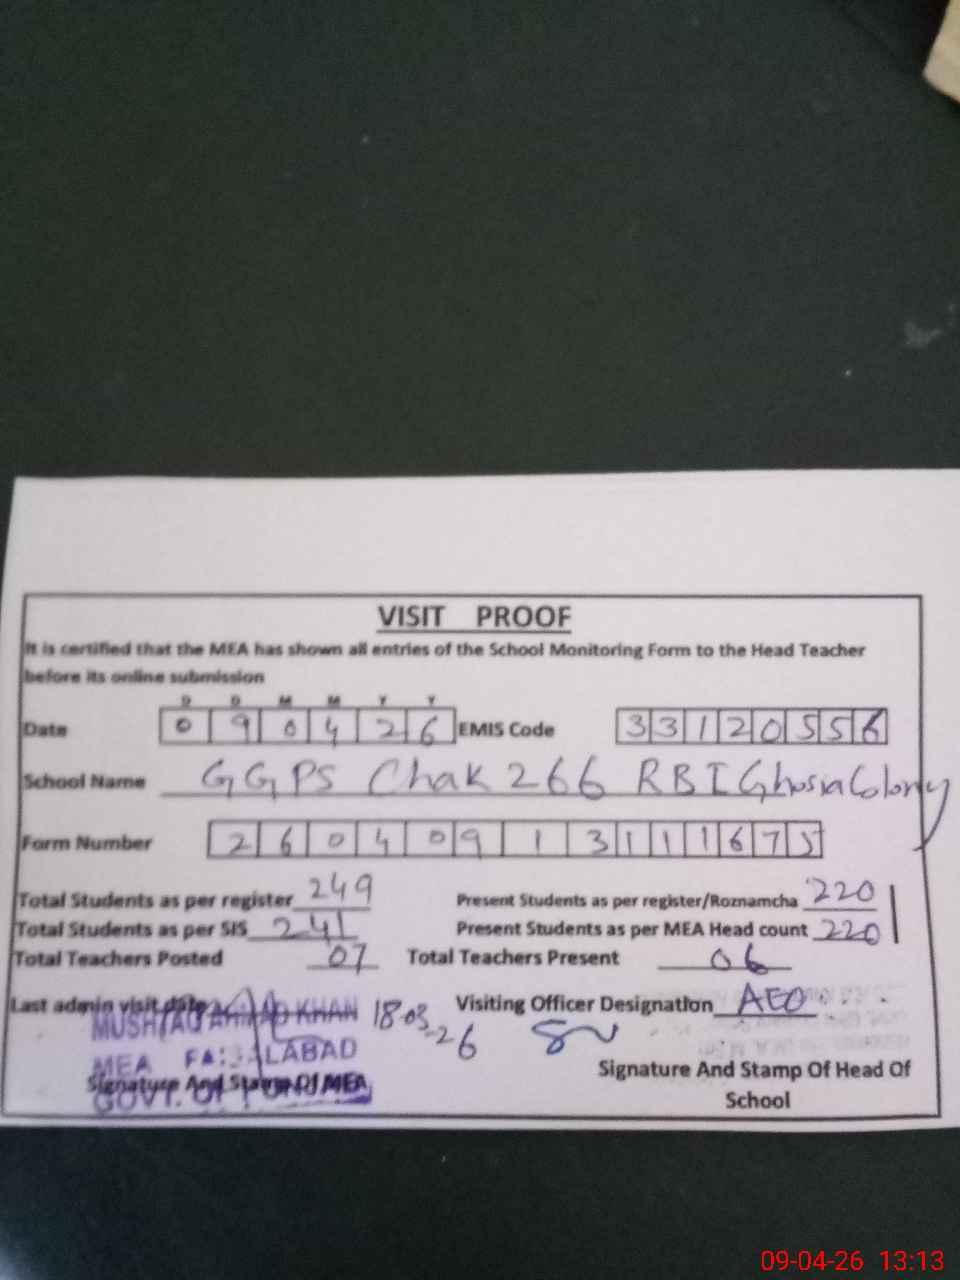 VISIT PROOF
It is certified that the MEA has shown all entries of the School Monitoring Form to the Head Teacher
before its online submission
D D M M Y Y
Date 0 9 0 4 2 6 EMIS Code 3 3 1 2 0 5 5 6
School Name GGPS Chak 266 RBI Ghosia Colony
Form Number 2 6 0 4 0 9 1 3 1 1 1 6 7 5
Total Students as per register 249 Present Students as per register/Roznamcha 220
Total Students as per SIS 241 Present Students as per MEA Head count 220
Total Teachers Posted 07 Total Teachers Present 06
Last admin visit date 18-03-26 Visiting Officer Designation AEO
MUSHTAQ AHMAD KHAN
MEA FAISALABAD
GOVT. OF PUNJAB
Signature And Stamp Of MEA
Signature And Stamp Of Head Of
School
09-04-26 13:13